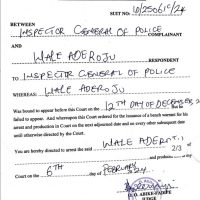 SUIT NO: ID/25061C/24
BETWEEN
INSPECTOR GENERAL OF POLICE
COMPLAINANT
AND
WALE ADEROJU
RESPONDENT
TO INSPECTOR GENERAL OF POLICE
WHEREAS: WALE ADEROJU
Was bound to appear before this Court on the 12TH DAY OF DECEMBER 2
failed to appear. And whereupon this Court ordered for the issuance of a bench warrant for his
arrest and production in Court on the next adjourned date and on every other subsequent date
until otherwise directed by the Court.
You are hereby directed to arrest the said WALE ADEROJU
2/3 of
and produce
Court on the 6TH day of FEBRUARY
JUDGE